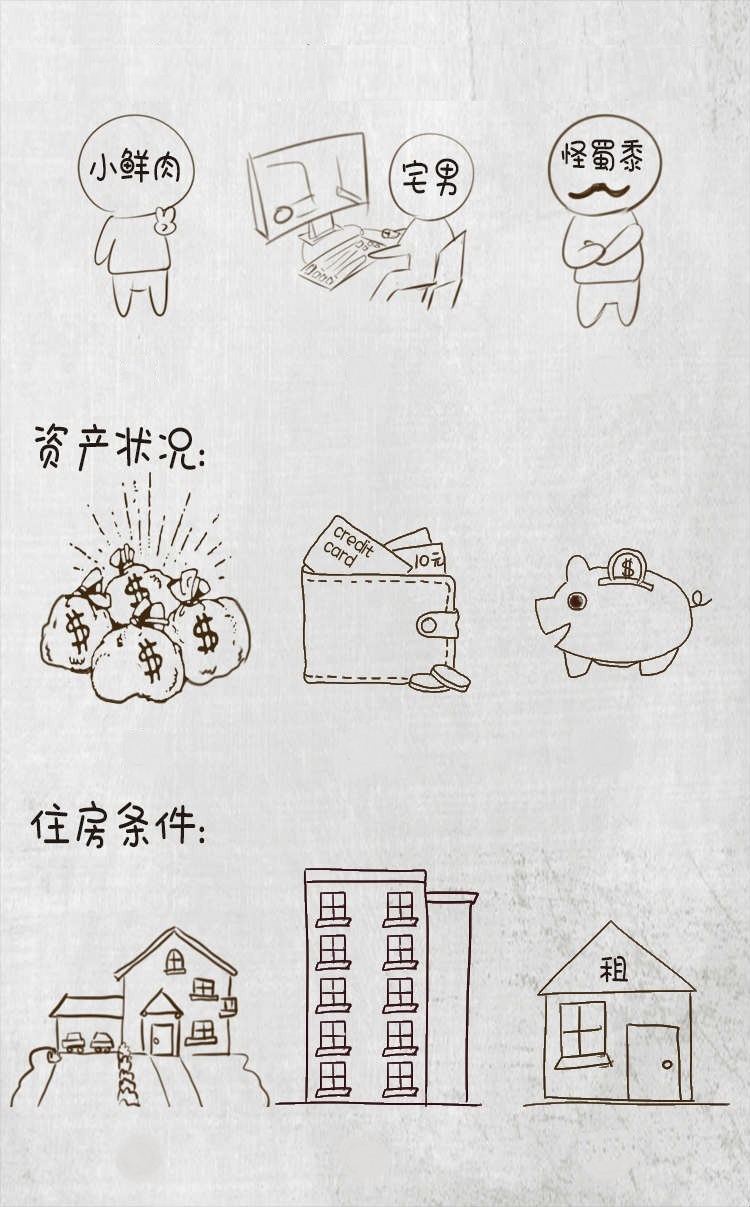 小鲜肉
宅男
怪蜀黍
资产状况:
$
$
$
$
credit
card
10元
$
住房条件:
租